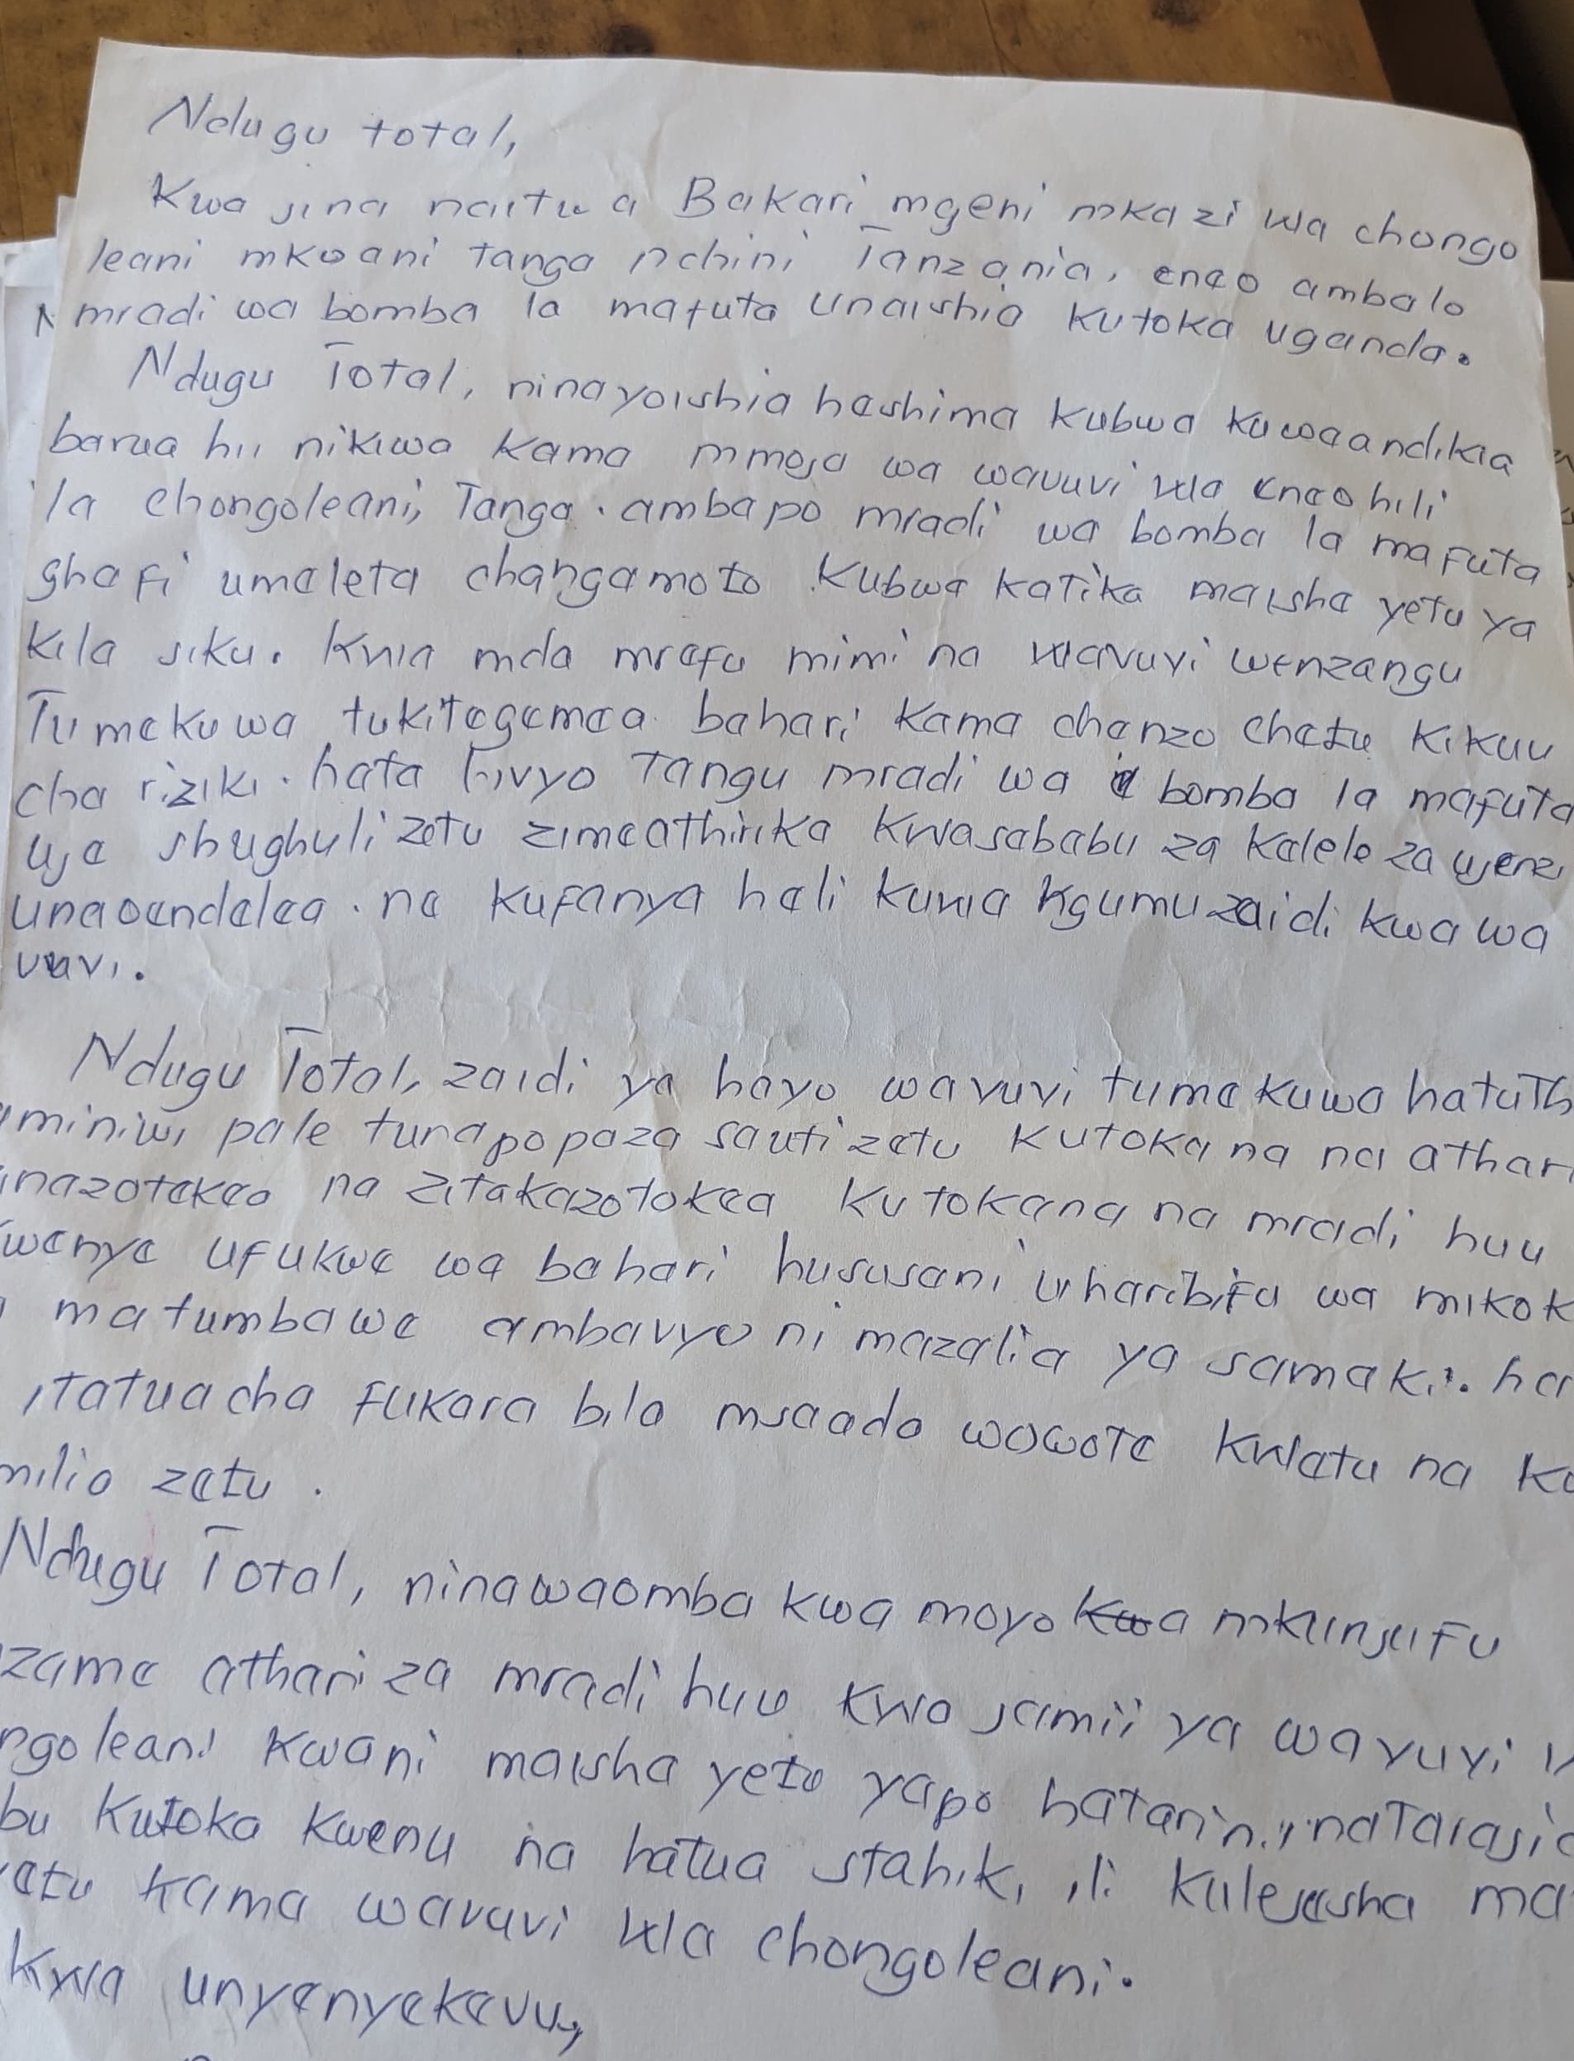 Ndugu total,
Kwa jina naitwa Bakari mgeni mkazi wa chongo
leani mkoani tanga nchini Tanzania, eneo ambalo
mradi wa bomba la mafuta unaishia kutoka uganda.
Ndugu Total, ninayoishia heshima kubwa kuwaandikia
barua hii nikiwa kama mmoja wa wavuvi wa eneo hili
la chongoleani, Tanga. ambapo mradi wa bomba la mafuta
ghafi umeleta changamoto kubwa katika maisha yetu ya
kila siku. Kwa mda mrefu mimi na wavuvi wenzangu
Tumekuwa tukitegemea bahari kama chanzo chetu kikuu
cha riziki. hata hivyo Tangu mradi wa bomba la mafuta
uje shughuli zetu zimeathirika kwasababu za kelele za ujenzi
unaoendelea. na kufanya hali kuwa Ngumu zaidi kwa wa
vuvi.
Ndugu Total, zaidi ya hayo wavuvi tumekuwa hatuth
aminiwi pale tunapopaza sauti zetu kutokana na athari
inazotokeo na zitakazotokea kutokana na mradi huu
kwenye ufukwe wa bahari hususani uharibifu wa mikok
matumbawe ambavyo ni mazalia ya samaki. ha
itatuacha fukara bila msaada wowote kwetu na k
milio zetu.
Ndugu Total, ninawaomba kwa moyo kwa mkunjufu
zame athari za mradi huu kwa jamii ya wavuvi
ngoleani kwani maisha yetu yapo hatarini. inatarajia
bu kutoka kwenu na hatua stahiki ili kulejesha ma
etu kama wavuvi wa chongoleani.
Kwa unyenyekevu,